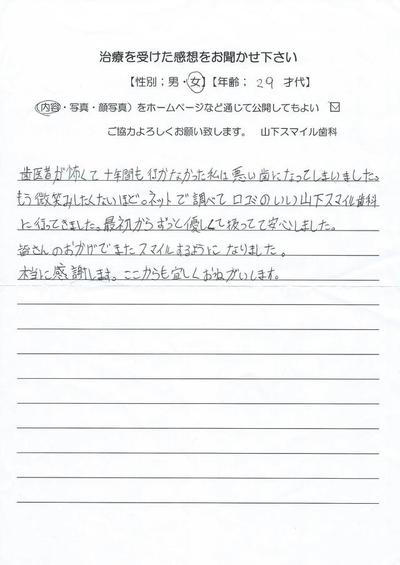 治療を受けた感想をお聞かせ下さい
【性別;男・女】【年齢; 29 才代】
(内容・写真・顔写真)をホームページなど通じて公開してもよい ☑
ご協力よろしくお願い致します。 山下スマイル歯科
歯医者が怖くて十年間も行かなかった私は悪い歯になってしまいました。
もう微笑みしたくないほど。ネットで調べて口コミのいい山下スマイル歯科
に行ってきました。最初からずっと優しくて扱ってて安心しました。
皆さんのおかげでまたスマイルするようになりました。
本当に感謝します。ここからも宜しくおねがいします。